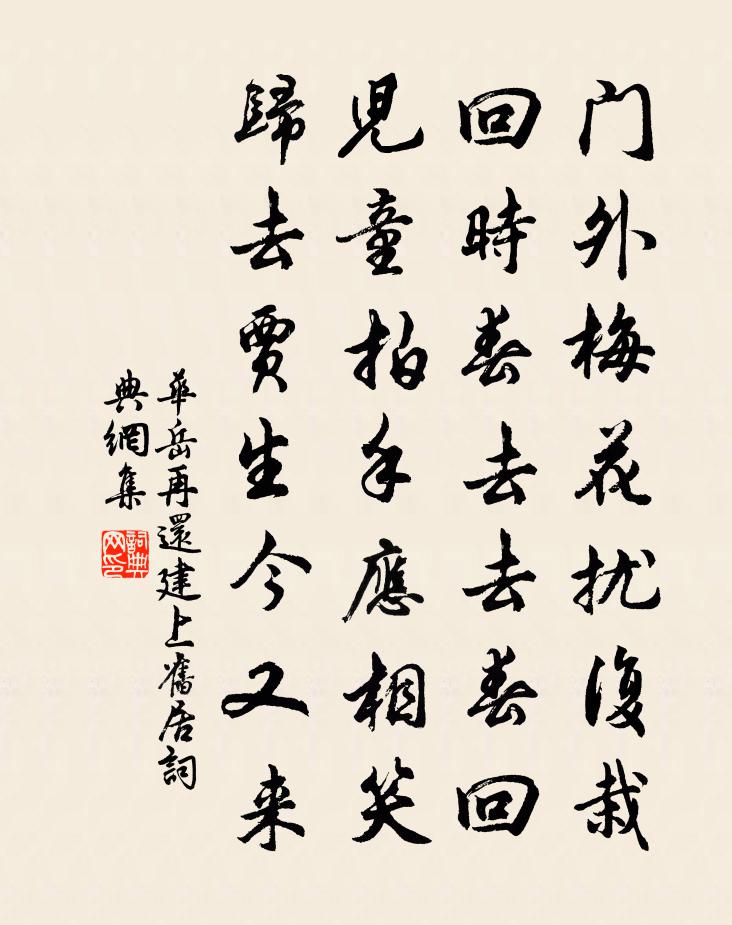 门外梅花扰復栽
回時春去去春回
児童拍手應相笑
歸去賈生今又来
華岳再還建上舊居詞
典網集
詞典网印